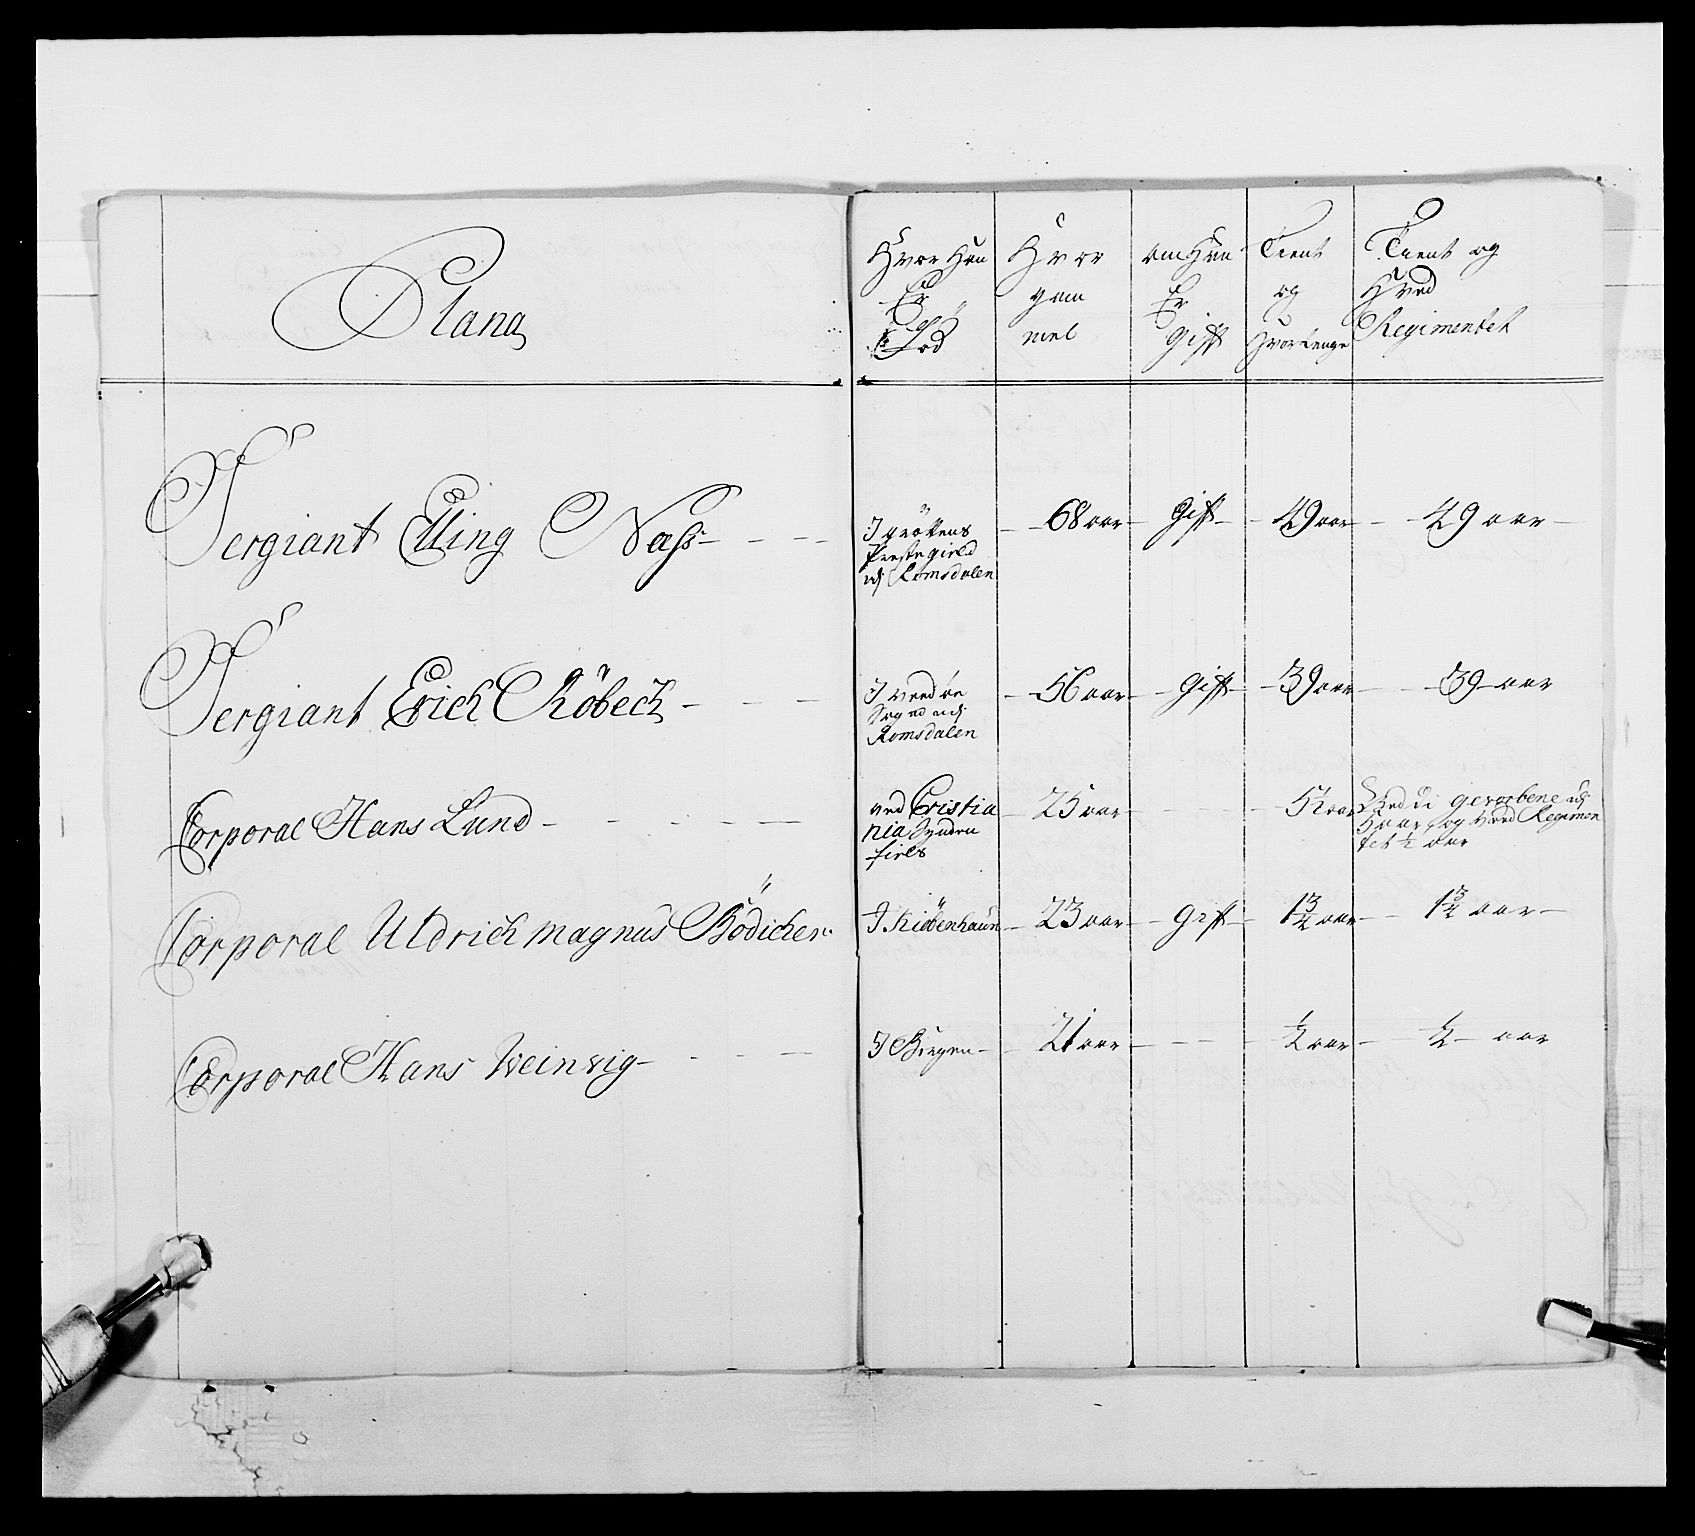 Plana
Hvor Han
Er
Föd
Hvor
gam
mel
om Han
Er
gift
Tient
og
Hvor Lenge
Tient og
Hved
Regimentet
Sergiant Elling Næss
I grÿttens
Prestegield
udj Romsdalen
68 aar
Gift
49 aar
49 aar
Sergiant Erich Röbech
I veedöe
Sogn udj
Romsdalen
56 aar
gift
39 aar
39 aar
Corporal Hans Lund
ved Cristia
nia Synden
fiels
25 aar
5½ aar
Ved di gevorbene udj
5 aar, og Ved Regimen
tet ½ aar
Corporal Uldrich Magnus Bödicher
I Kiöbenhaun
23 aar
gift
1¾ aar
1¾ aar
Corporal Hans Weinvig
I Birgen
21 aar
½ aar
½ aar